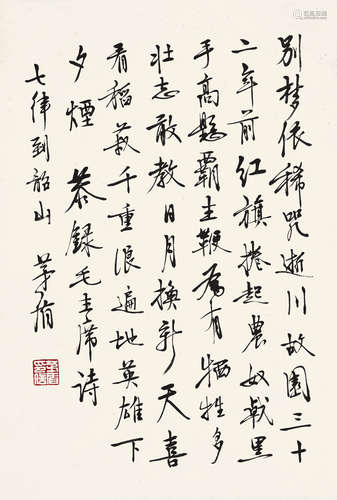 别梦依稀咒逝川故園三十
二年前红旗捲起農奴戟黑
手高懸霸主鞭為有牺牲多
壮志敢教日月换新天喜
看稻菽千重浪遍地英雄下
夕煙 恭録毛主席诗
七律到韶山 茅盾